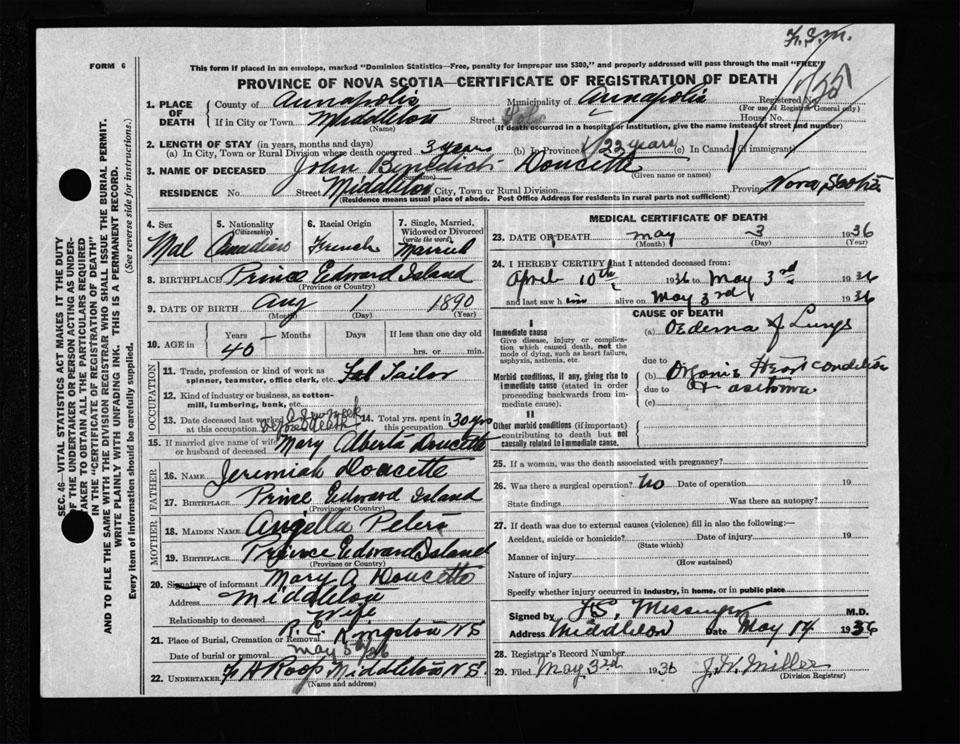 F.S.M.
FORM 6
This form if placed in an envelope, marked "Dominion Statistics—Free, penalty for improper use $300," and properly addressed will pass through the mail "FREE"
PROVINCE OF NOVA SCOTIA—CERTIFICATE OF REGISTRATION OF DEATH
1. PLACE OF DEATH
County of Annapolis Municipality of Annapolis Registered No.
(For use of Registrar General only)
If in City or Town Middleton Street House No.
(Name) (If death occurred in a hospital or institution, give the name instead of street and number)
2. LENGTH OF STAY (in years, months and days)
(a) In City, Town or Rural Division where death occurred 3 years (b) In Province 22 years (c) In Canada (if immigrant)
3. NAME OF DECEASED John Doucette
(Surname) (Given name or names)
RESIDENCE No. Street Middleton City, Town or Rural Division Province Nova Scotia
(Residence means usual place of abode. Post Office Address for residents in rural parts not sufficient)
SEC. 46—VITAL STATISTICS ACT MAKES IT THE DUTY
OF THE UNDERTAKER OR PERSON ACTING AS UNDER-
TAKER TO OBTAIN ALL THE PARTICULARS REQUIRED
IN THE "CERTIFICATE OF REGISTRATION OF DEATH"
AND TO FILE THE SAME WITH THE DIVISION REGISTRAR WHO SHALL ISSUE THE BURIAL PERMIT.
WRITE PLAINLY WITH UNFADING INK. THIS IS A PERMANENT RECORD.
Every item of information should be carefully supplied. (See reverse side for instructions.)
4. Sex
Mal
5. Nationality (Citizenship)
Canadien
6. Racial Origin
French
7. Single, Married, Widowed or Divorced (write the word)
Married
8. BIRTHPLACE Prince Edward Island
(Province or Country)
9. DATE OF BIRTH Aug 1 1890
(Month) (Day) (Year)
10. AGE in
Years Months Days If less than one day old
45 - hrs. or min.
OCCUPATION
11. Trade, profession or kind of work as
spinner, teamster, office clerk, etc. Tailor
12. Kind of industry or business, as cotton-
mill, lumbering, bank, etc.
13. Date deceased last worked at this occupation
14. Total yrs. spent in this occupation 30 yrs
15. If married give name of wife or husband of deceased Mary Alberta Doucette
FATHER
16. NAME Jeremiah Doucette
17. BIRTHPLACE Prince Edward Island
(Province or Country)
MOTHER
18. MAIDEN NAME Angella Peters
19. BIRTHPLACE Prince Edward Island
(Province or Country)
20. Signature of informant Mary A Doucette
Address Middleton
Relationship to deceased Wife
21. Place of Burial, Cremation or Removal R.C. Kingston NS
Date of burial or removal May 5th/36
22. UNDERTAKER F H Roop Middleton N S
(Name and address)
MEDICAL CERTIFICATE OF DEATH
23. DATE OF DEATH May 3 1936
(Month) (Day) (Year)
24. I HEREBY CERTIFY that I attended deceased from:
April 10th 1936 to May 3rd 1936
and last saw him alive on May 3rd 1936
CAUSE OF DEATH
I
Immediate cause
Give disease, injury or complica-
tion which caused death, not the
mode of dying, such as heart failure,
asphyxia, asthenia, etc.
(a) Oedema of Lungs
due to
Morbid conditions, if any, giving rise to
immediate cause (stated in order
proceeding backwards from im-
mediate cause).
(b) Organic Heart condition
due to asthma
(c)
II
Other morbid conditions (if important)
contributing to death but not
causally related to immediate cause.
25. If a woman, was the death associated with pregnancy?
26. Was there a surgical operation? No Date of operation 19
State findings Was there an autopsy?
27. If death was due to external causes (violence) fill in also the following:—
Accident, suicide or homicide? Date of injury 19
(State which)
Manner of injury
(How sustained)
Nature of injury
Specify whether injury occurred in industry, in home, or in public place
Signed by Messinger M.D.
Address Middleton Date May 14 1936
28. Registrar's Record Number
29. Filed May 3rd 1936 Miller
(Division Registrar)